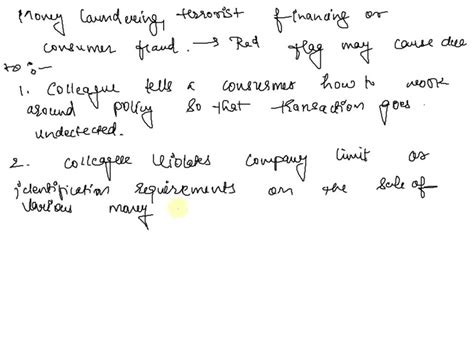 Money Laundering, terrorist financing or
consumer fraud. → Red flag may cause due
to :-
1. Colleague tells a consumer how to work
around policy so that transaction goes
undetected.
2. Colleague Violates company limit or
identification requirements on the sale of
various money